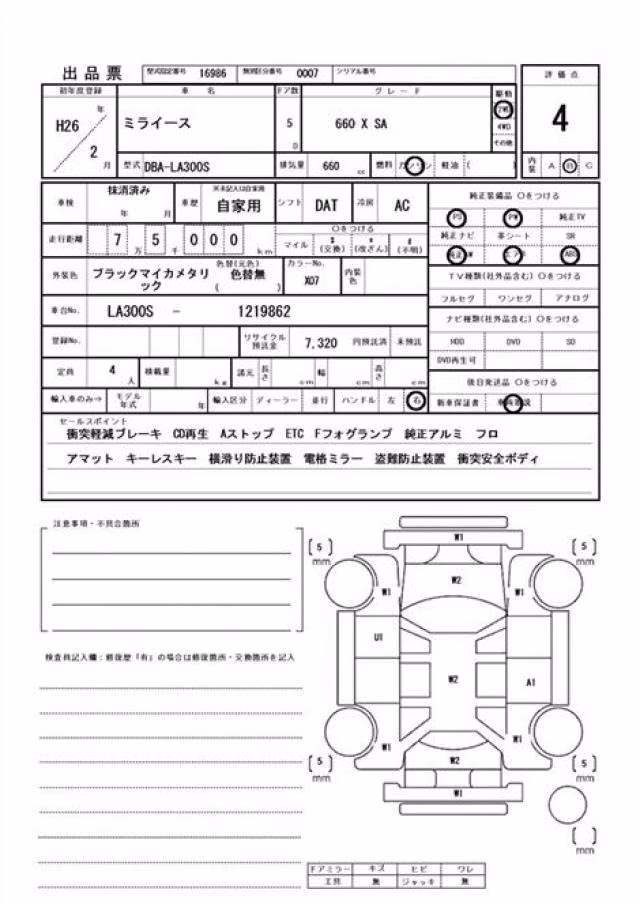 出品票 型式指定番号 16986 類別区分番号 0007 シリアル番号
初年度登録 車名 ドア数 グレード 駆動 評価点
H26 年 2 月 ミライース 5 D 660 X SA 2WD 4WD その他 4
型式 DBA-LA300S 排気量 660 cc 燃料 ガソリン 軽油 ( ) 内装 A B C
車検 抹消済み 年 月 車歴 ※未記入は自家用 自家用 シフト DAT 冷房 AC 純正装備品 ○をつける
PS PW 純正TV
走行距離 7 万 5 千 0 0 0 km ○をつける マイル $ (交換) * (改ざん) # (不明)
純正ナビ 革シート SR
純正AW エアB ABS
外装色 ブラックマイカメタリック 色替(元色) 色替無 ( ) カラーNo. X07 内装色
TV種類(社外品含む) ○をつける
フルセグ ワンセグ アナログ
車台No. LA300S - 1219862
ナビ種類(社外品含む) ○をつける
登録No. リサイクル預託金 7,320 円預託済 未預託
HDD DVD SD
DVD再生可
定員 4 人 積載量 kg 諸元 長さ cm 幅 cm 高さ cm
後日発送品 ○をつける
輸入車のみ⇒ モデル年式 年 輸入区分 ディーラー 並行 ハンドル 左 右 新車保証書
セールスポイント
衝突軽減ブレーキ CD再生 Aストップ ETC Fフォグランプ 純正アルミ フロ
アマット キーレスキー 横滑り防止装置 電格ミラー 盗難防止装置 衝突安全ボディ
注意事項・不具合箇所
[5] mm W1 [5] mm
W2
W1 W1
U1
検査員記入欄：修復歴「有」の場合は修復箇所・交換箇所を記入
W2 A1
W1 W1
W2
[5] mm W1 [5] mm
[ ] mm
ドアミラー キズ ヒビ ワレ
工具 無 ジャッキ 無